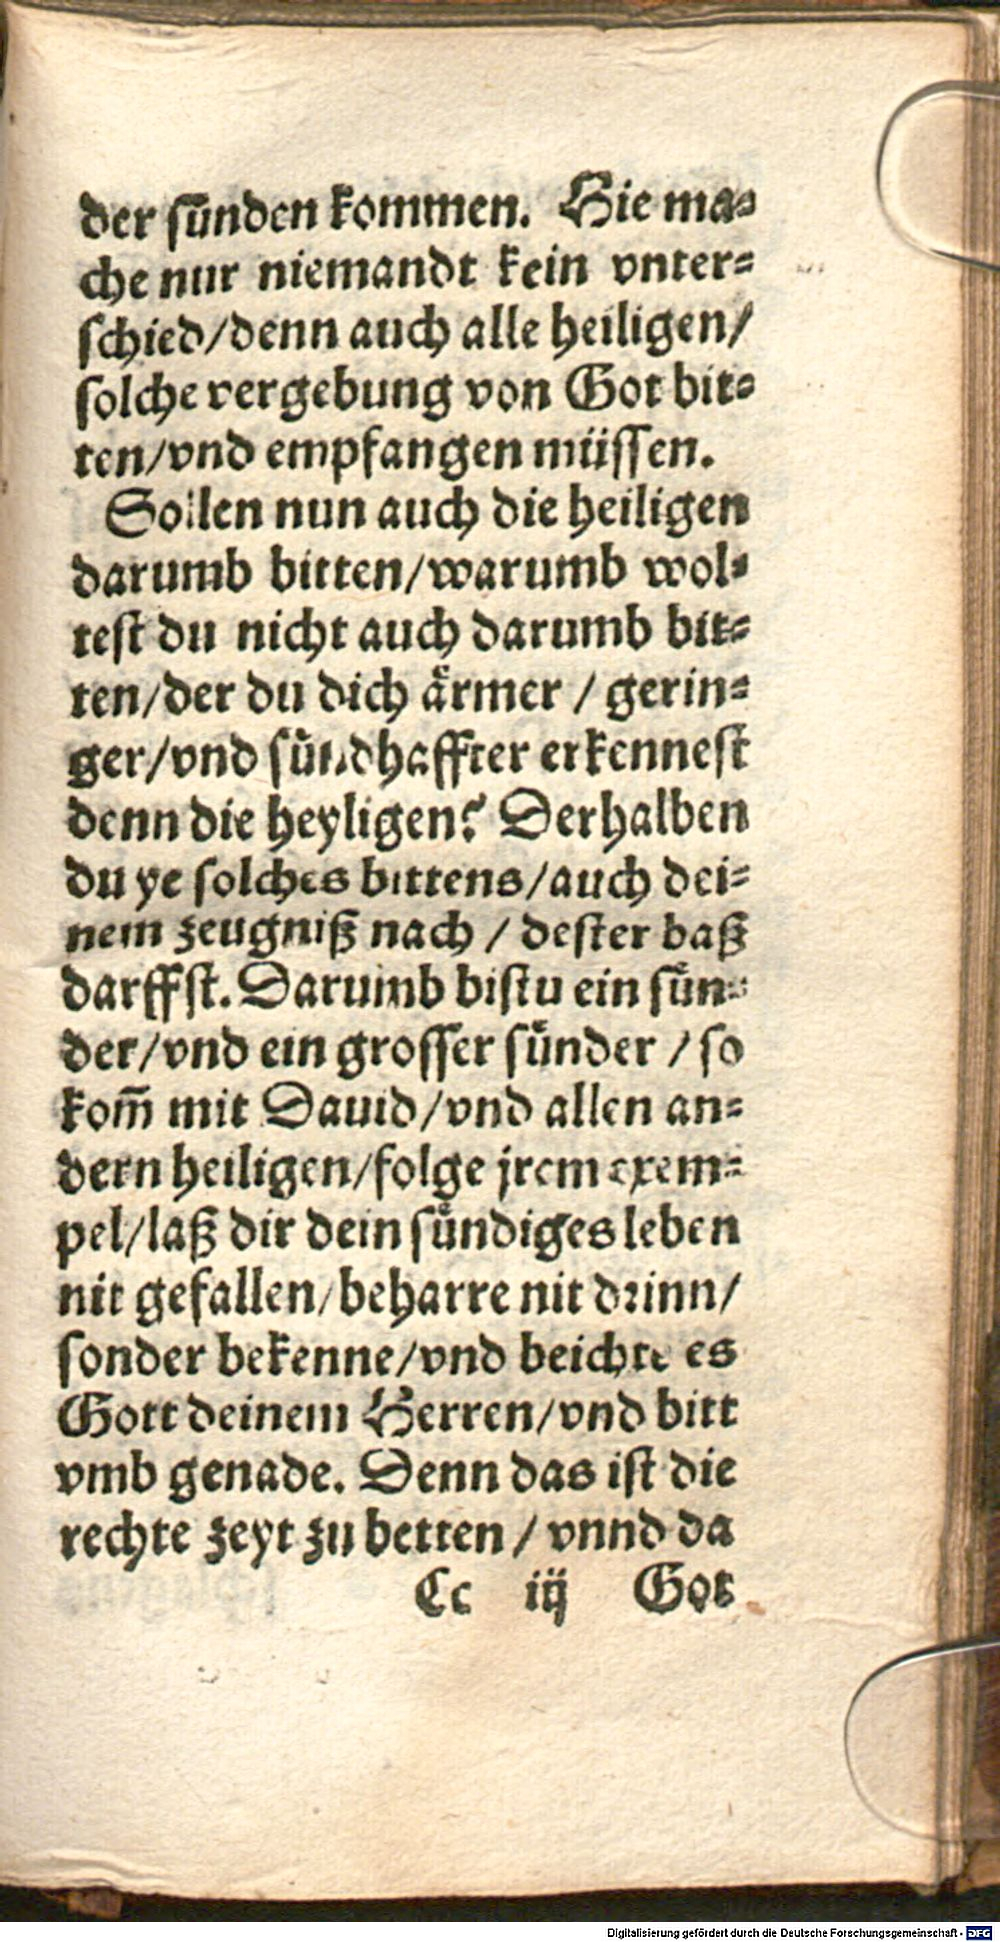 der sünden kommen. Hie ma⸗
che nur niemandt kein vnter⸗
schied/denn auch alle heiligen/
solche vergebung von Got bit⸗
ten/vnd empfangen müssen.
Sollen nun auch die heiligen
darumb bitten/warumb wol⸗
test du nicht auch darumb bit⸗
ten/der du dich ärmer / gerin⸗
ger/vnd sündhaffter erkennest
denn die heyligen? Derhalben
du ye solches bittens/auch dei⸗
nem zeugniß nach / dester baß
darffst. Darumb bistu ein sün⸗
der/vnd ein grosser sünder / so
kom̃ mit Dauid/vnd allen an⸗
dern heiligen/folge jrem exem⸗
pel/laß dir dein sündiges leben
nit gefallen/beharre nit drinn/
sonder bekenne/vnd beichte es
Gott deinem Herren/vnd bitt
vmb genade. Denn das ist die
rechte zeyt zu betten / vnnd da
Cc iij Got
Digitalisierung gefördert durch die Deutsche Forschungsgemeinschaft - DFG